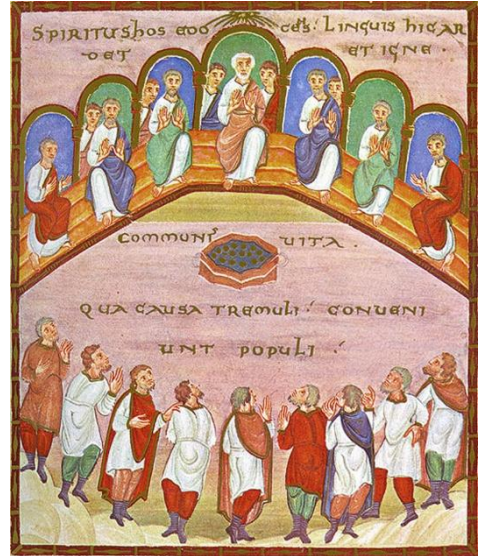 SPIRITUS hOS EDO CES: LINGUIS hIC AR
DET ET IGNE ·
COMMUNIS VITA ·
QUA CAUSA TREMULI: CONUENI
UNT POPULI :